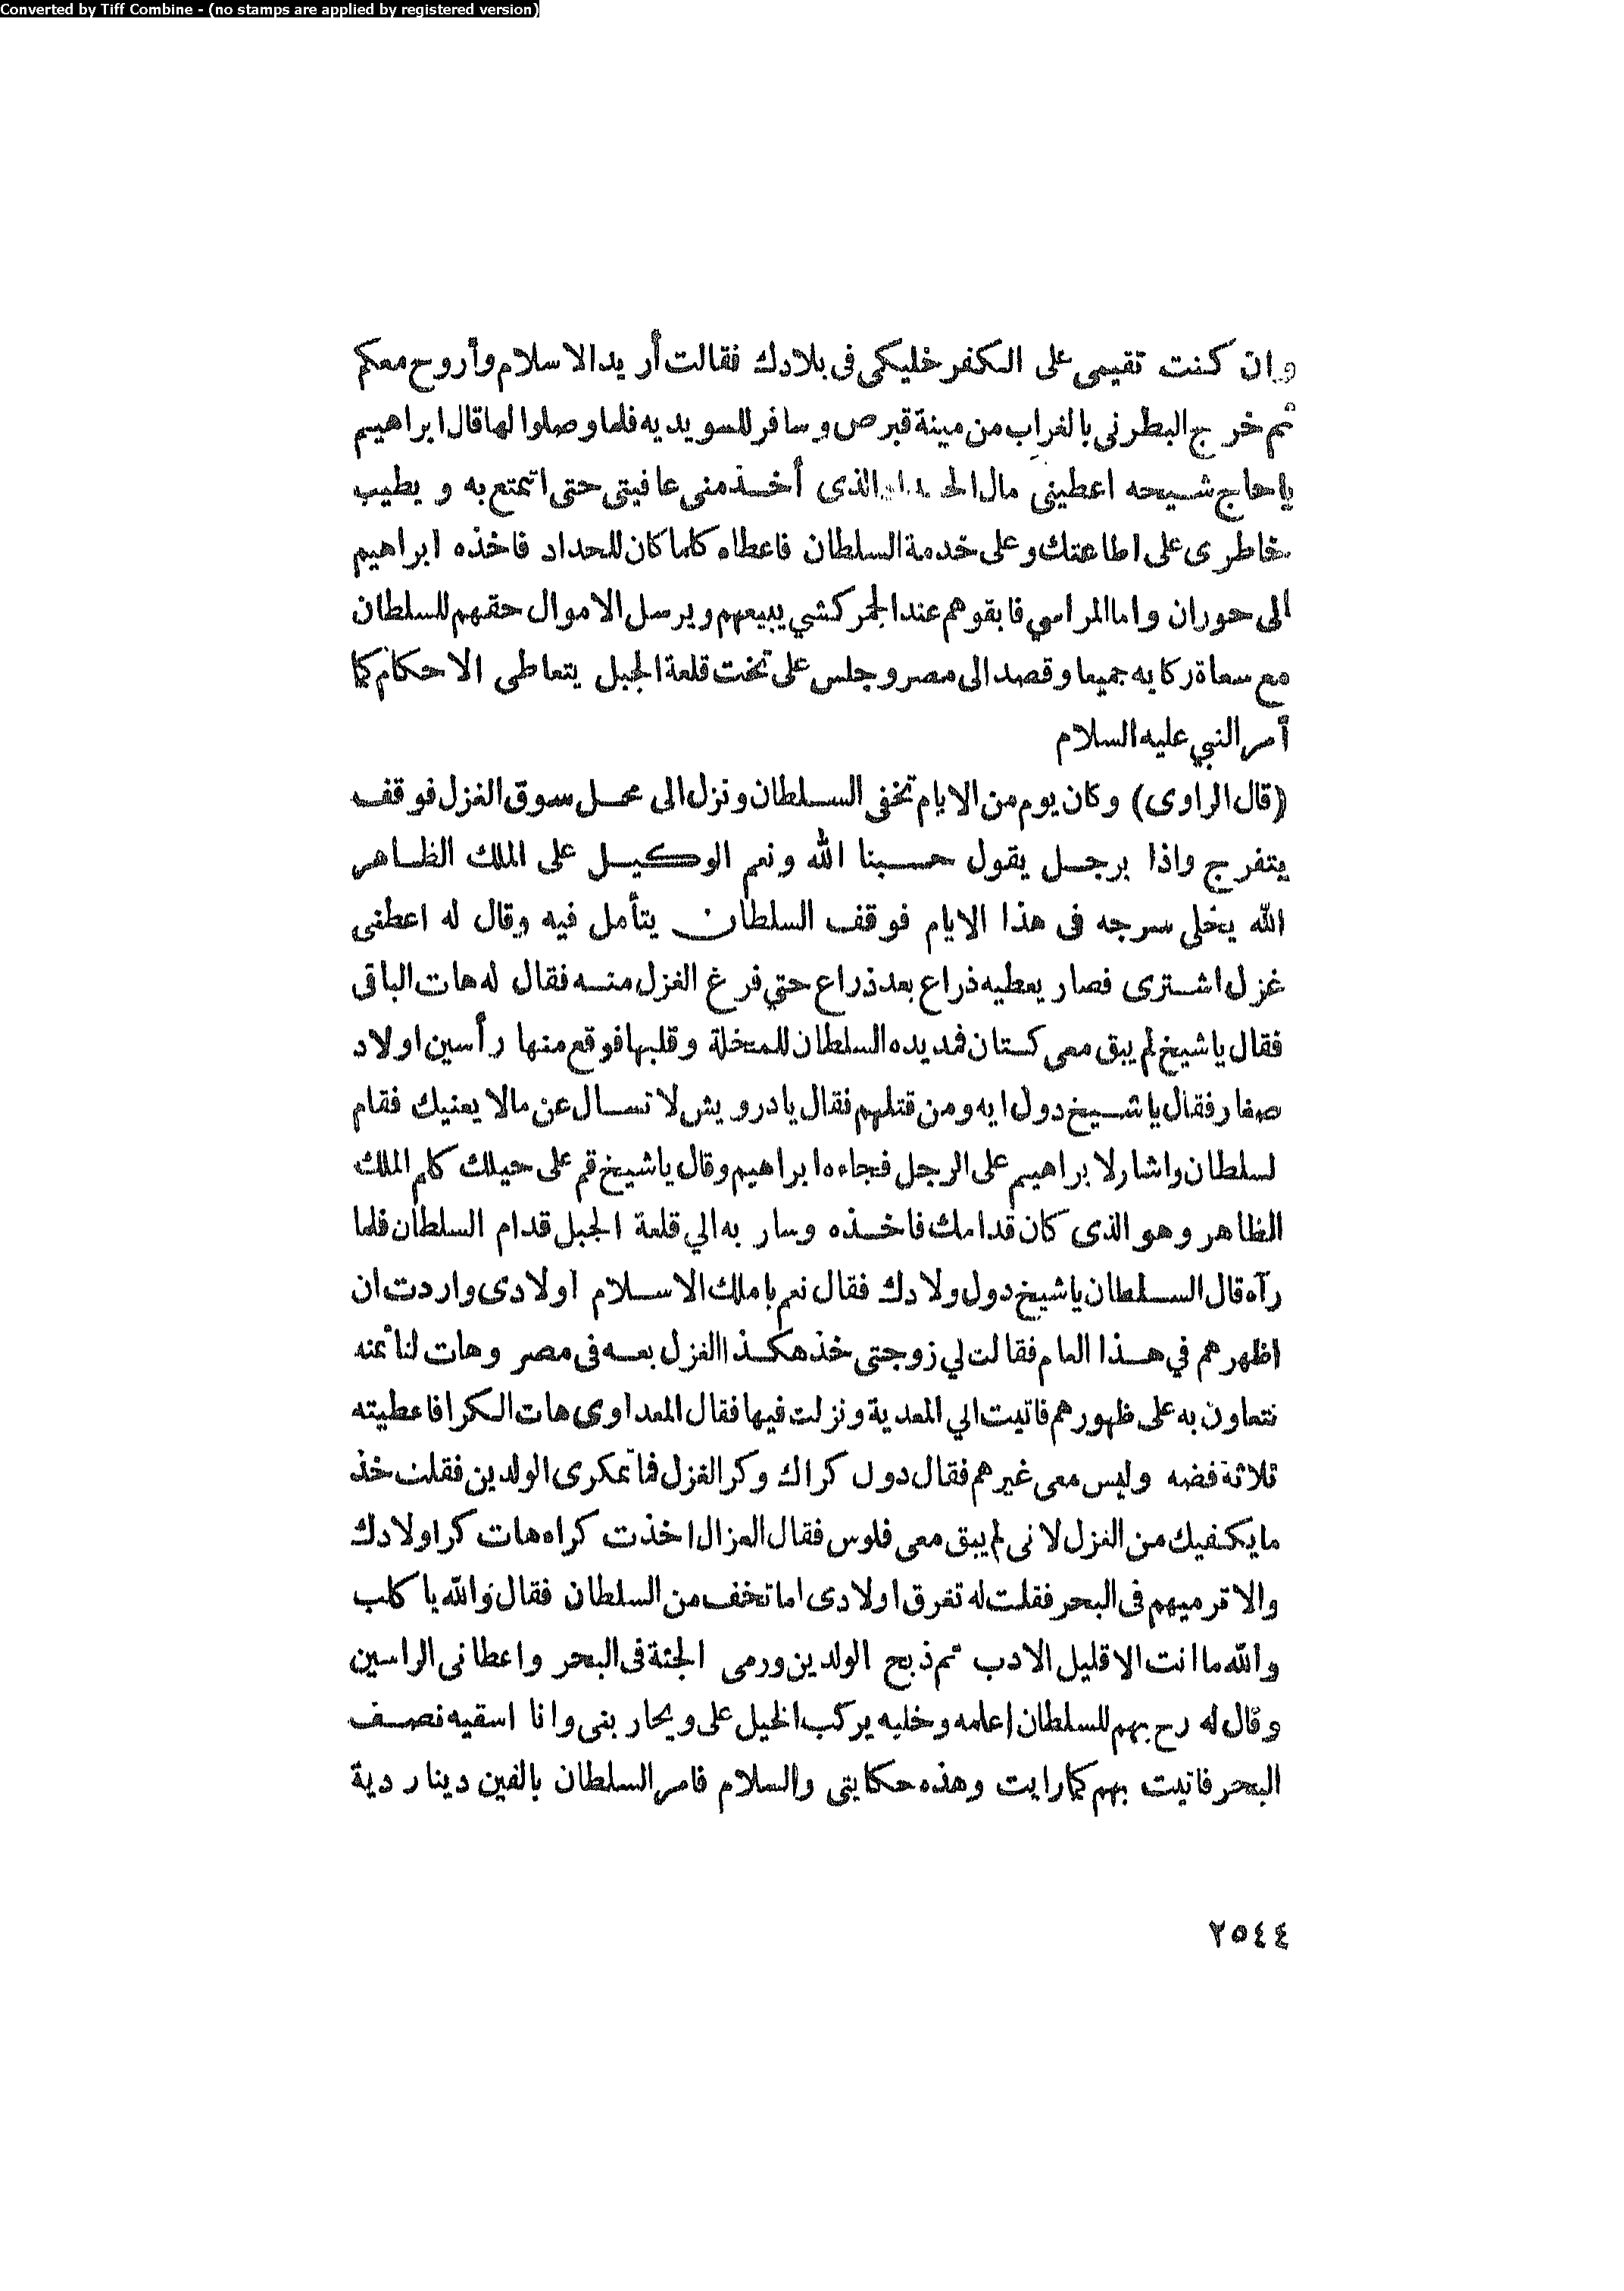 Converted by Tiff Combine - (no stamps are applied by registered version)
وان كنت تقيمى على الكفر خليكى فى بلادك فقالت أريد الاسلام وأروح معكم
ثم خرج البطرنى بالغراب من مينة قبرص وسافر للسويديه فلما وصلوا لها قال ابراهيم
ياحاج شيحه اعطينى مال الحداد الذى أخذ منى عافيتى حتى اتمتع به ويطيب
خاطرى على اطاعتك وعلى خدمة السلطان فاعطاه كلما كان للحداد فاخذه ابراهيم
الى حوران واما المراسي فابقوهم عند الجمركشي يبيعهم ويرسل الاموال حقهم للسلطان
مع سعاة ركابه جميعا وقصد الى مصر وجلس على تخت قلعة الجبل يتعاطى الاحكام كما
أمر النبي عليه السلام
(قال الراوى) وكان يوم من الايام تخفى السلطان ونزل الى محل سوق الغزل فوقف
يتفرج واذا برجل يقول حسبنا الله ونعم الوكيل على الملك الظاهر
الله يخلى سرجه فى هذا الايام فوقف السلطان يتأمل فيه وقال له اعطنى
غزل اشترى فصار يعطيه ذراع بعد ذراع حتي فرغ الغزل منه فقال له هات الباقى
فقال ياشيخ لم يبق معى كستان فمد يده السلطان للمخلة وقلبها فوقع منها رأسين اولاد
صغار فقال ياشيخ دول ايه ومن قتلهم فقال يادرويش لا تسال عن مالا يعنيك فقام
لسلطان واشار لابراهيم على الرجل فجاءه ابراهيم وقال ياشيخ قم على حيلك كلم الملك
الظاهر وهو الذى كان قدامك فاخذه وسار به الي قلعة الجبل قدام السلطان فلما
رآه قال السلطان ياشيخ دول ولادك فقال نعم ياملك الاسلام اولادى واردت ان
اظهرهم في هذا العام فقالت لي زوجتى خذ هكذا الغزل بعه فى مصر وهات لنا ثمنه
نتعاون به على ظهورهم فاتيت الي المعدية ونزلت فيها فقال المعداوى هات الكرا فاعطيته
ثلاثة فضه وليس معى غيرهم فقال دول كراك وكر الغزل فأتمكرى الولدين فقلت خذ
مايكفيك من الغزل لانى لم يبق معى فلوس فقال الغزال اخذت كراه هات كرا ولادك
والا نرميهم فى البحر فقلت له تغرق اولادى اما تخف من السلطان فقال والله يا كلب
والله ما انت الا قليل الادب ثم ذبح الولدين ورمى الجثة فى البحر واعطانى الراسين
وقال له رح بهم للسلطان اعلمه وخليه يركب الخيل على ويحاربنى وانا اسقيه نصف
البحر فاتيت بهم كما رايت وهذه حكايتى والسلام فامر السلطان بالفين دينار دية
٢٥٤٤